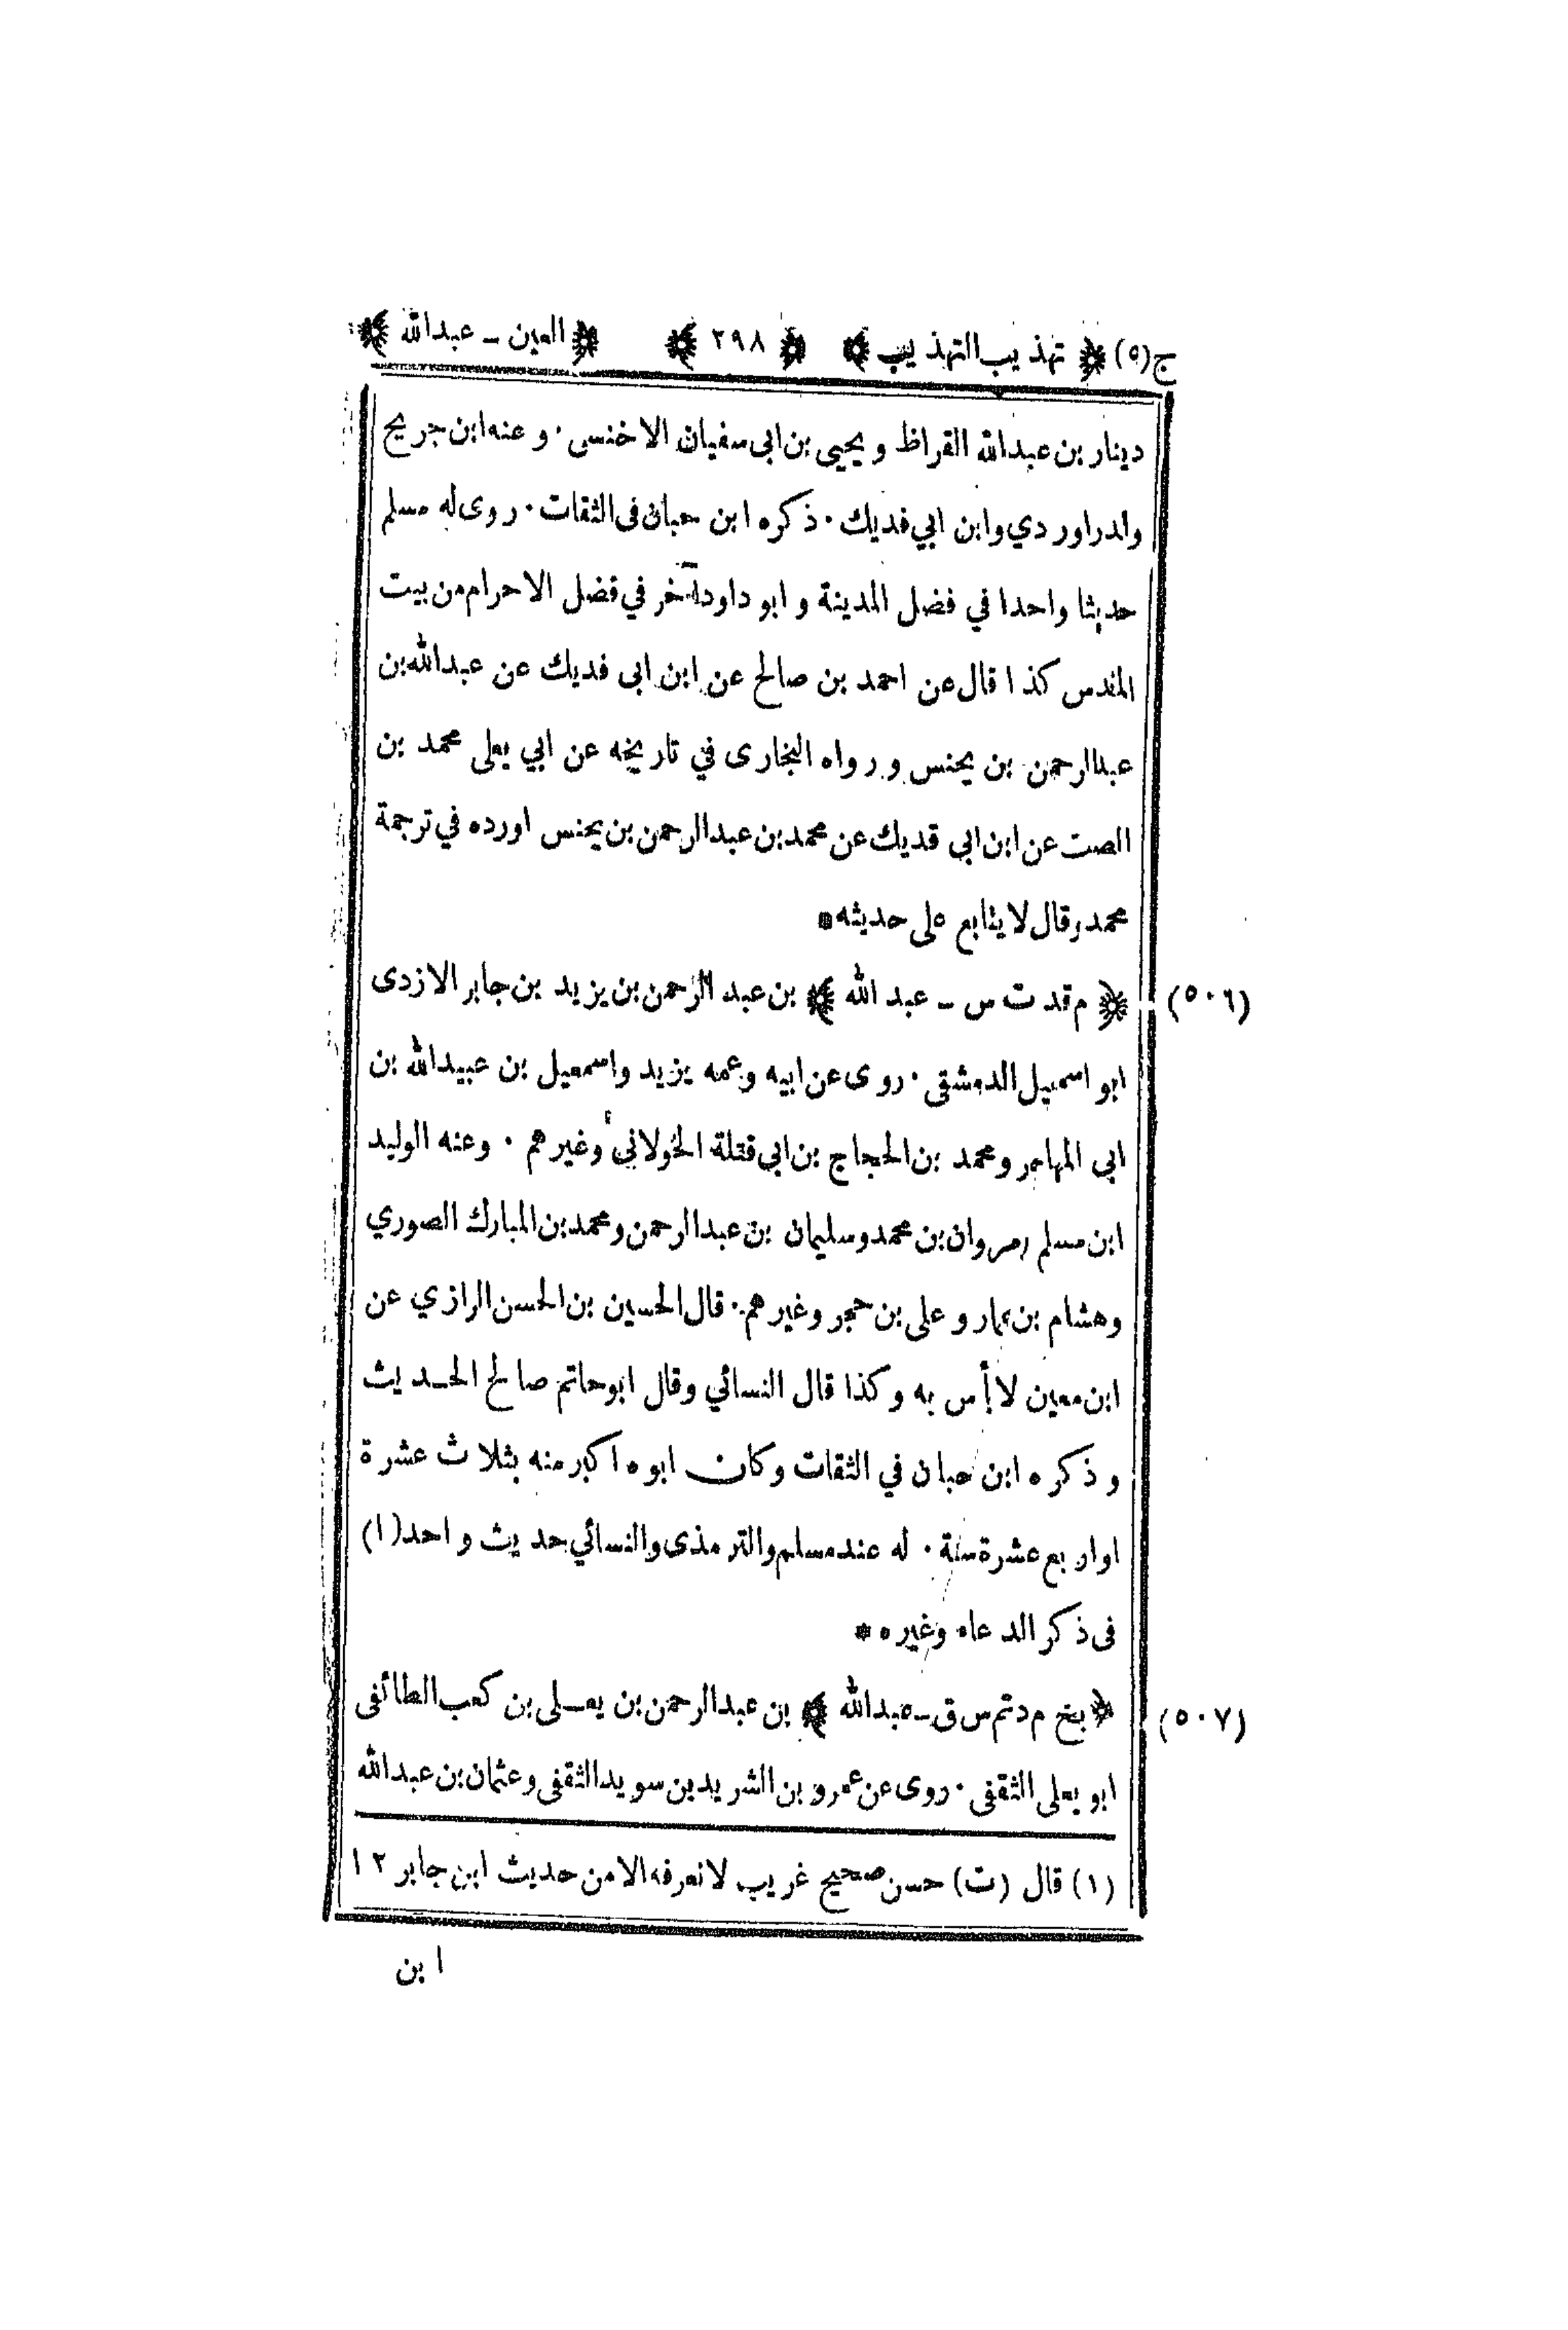 ج(٥) ﴿ تهذيب التهذيب ﴾ ﴿ ٢٩٨ ﴾ ﴿ العين ـ عبدالله ﴾
دينار بن عبدالله القراظ و يحيى بن ابى سفيان الاخنسى ٠ و عنه ابن جريج
والدراوردي وابن ابي فديك ٠ ذكره ابن حبان فى الثقات ٠ روى له مسلم
حديثا واحدا في فضل المدينة و ابو داود آخر في فضل الاحرام من بيت
المقدس كذا قال عن احمد بن صالح عن ابن ابى فديك عن عبدالله بن
عبدالرحمن بن يحنس و رواه البخارى في تاريخه عن ابي يعلى محمد بن
الصت عن ابن ابى فديك عن محمد بن عبدالرحمن بن يحنس اورده في ترجمة
محمد وقال لا يتابع على حديثه *
(٥٠٦) ﴿ م قد ت س ـ عبد الله ﴾ بن عبد الرحمن بن يزيد بن جابر الازدى
ابو اسمعيل الدمشقى ٠ روى عن ابيه وعمه يزيد واسمعيل بن عبيدالله بن
ابى المهاجر ومحمد بن الحجاج بن ابي قتلة الخولاني وغيرهم ٠ وعنه الوليد
ابن مسلم ومروان بن محمد وسليمان بن عبدالرحمن ومحمد بن المبارك الصوري
وهشام بن عمار و على بن حجر وغيرهم ٠ قال الحسين بن الحسن الرازي عن
ابن معين لا بأس به وكذا قال النسائي وقال ابو حاتم صالح الحديث
و ذكره ابن حبان في الثقات وكان ابوه اكبر منه بثلاث عشرة
او اربع عشرة سنة ٠ له عند مسلم والترمذى والنسائي حديث واحد (١)
فى ذكر الدعاء وغيره *
(٥٠٧) ﴿ بخ م د تم س ق ـ عبدالله ﴾ بن عبدالرحمن بن يعلى بن كعب الطائفى
ابو يعلى الثقفى ٠ روى عن عمرو بن الشريد بن سويد الثقفى وعثمان بن عبدالله
(١) قال (ت) حسن صحيح غريب لا نعرفه الا من حديث ابن جابر ١٢
ابن